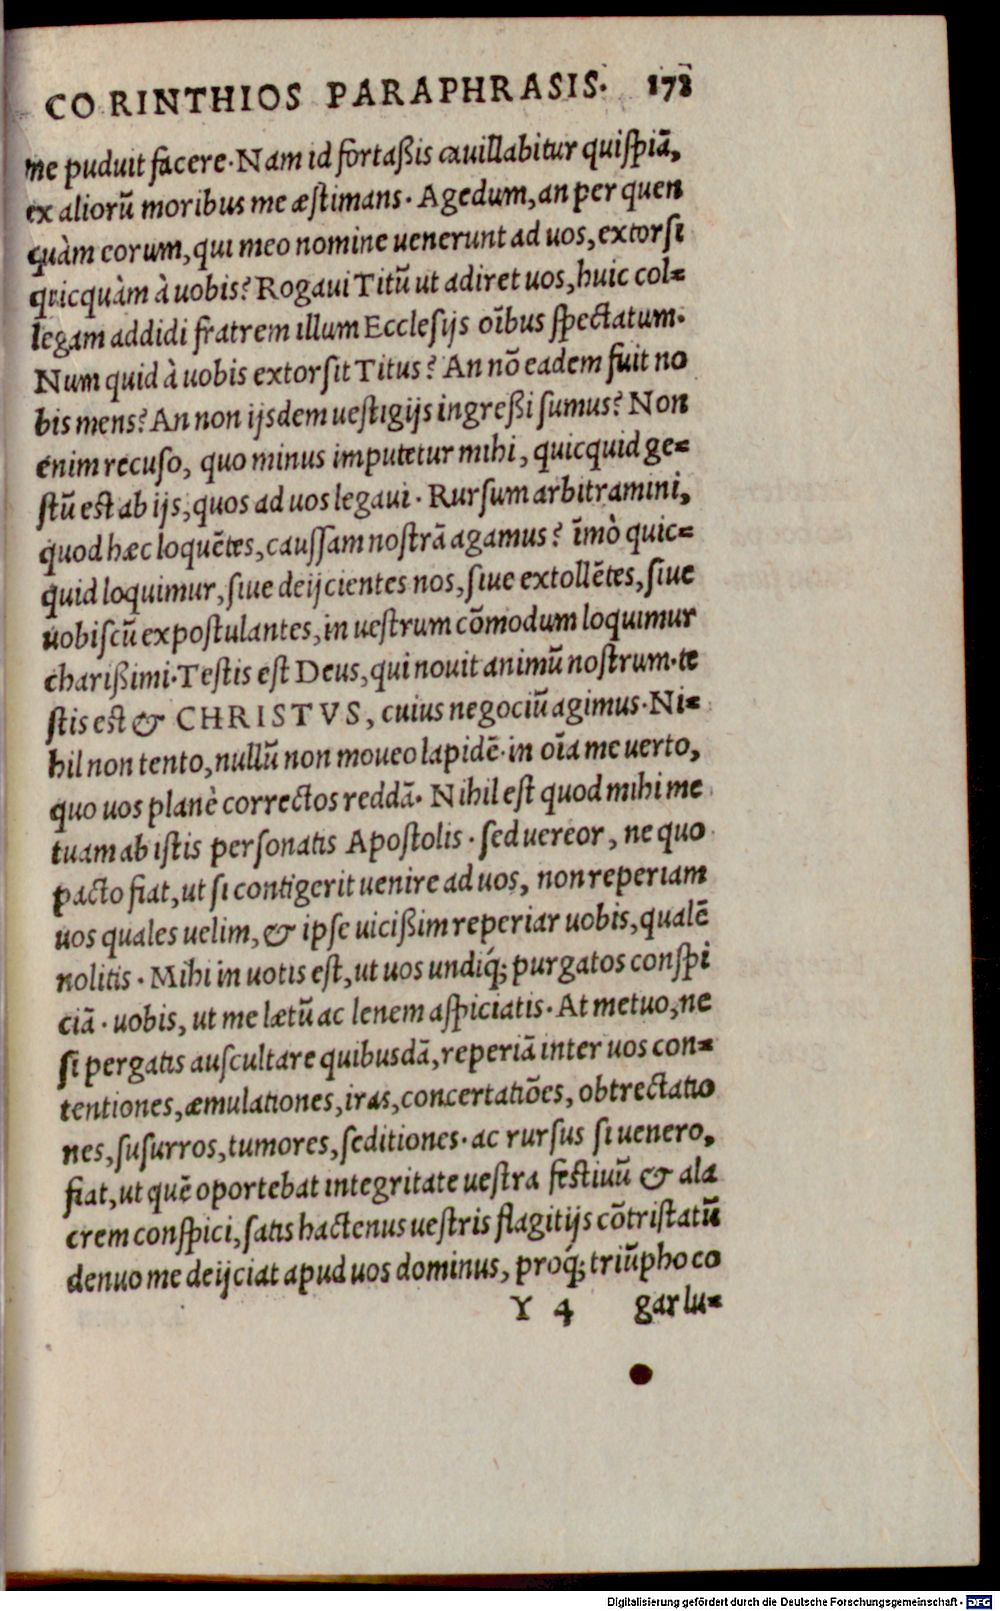 CORINTHIOS PARAPHRASIS. 172
me puduit facere. Nam id fortaßis cauillabitur quiſpiã,
ex aliorũ moribus me æſtimans. Agedum, an per quen
quàm eorum, qui meo nomine uenerunt ad uos, extorſi
quicquàm à uobis? Rogaui Titũ ut adiret uos, huic col=
legam addidi fratrem illum Eccleſijs oĩbus ſpectatum.
Num quid à uobis extorſit Titus? An nõ eadem fuit no
bis mens? An non ijsdem ueſtigijs ingreßi ſumus? Non
enim recuſo, quo minus imputetur mihi, quicquid ge=
ſtũ est ab ijs, quos ad uos legaui. Rurſum arbitramini,
quod hæc loquẽtes, cauſſam noſtrã agamus? ĩmò quic=
quid loquimur, ſiue deijcientes nos, ſiue extollẽtes, ſiue
uobiſcũ expoſtulantes, in ueſtrum cõmodum loquimur
charißimi. Teſtis eſt Deus, qui nouit animũ noſtrum. te
ſtis est & CHRISTVS, cuius negociũ agimus. Ni=
hil non tento, nullũ non moueo lapidẽ. in oĩa me uerto,
quo uos planè correctos reddã. Nihil eſt quod mihi me
tuam ab iſtis perſonatis Apoſtolis. ſed uereor, ne quo
pacto fiat, ut ſi contigerit uenire ad uos, non reperiam
uos quales uelim, & ipſe uicißim reperiar uobis, qualẽ
nolitis. Mihi in uotis eſt, ut uos undiq́; purgatos conſpi
ciã. uobis, ut me lætũ ac lenem aſpiciatis. At metuo, ne
ſi pergatis auſcultare quibusdã, reperiã inter uos con=
tentiones, æmulationes, iras, concertatiões, obtrectatio
nes, ſuſurros, tumores, ſeditiones. ac rurſus ſi uenero,
fiat, ut quẽ oportebat integritate ueſtra feſtiuũ & ala
crem conſpici, ſatis hactenus ueſtris flagitijs cõtriſtatũ
denuo me deijciat apud uos dominus, proq́; triũpho co
Y 4 gar lu=
Digitalisierung gefördert durch die Deutsche Forschungsgemeinschaft - DFG